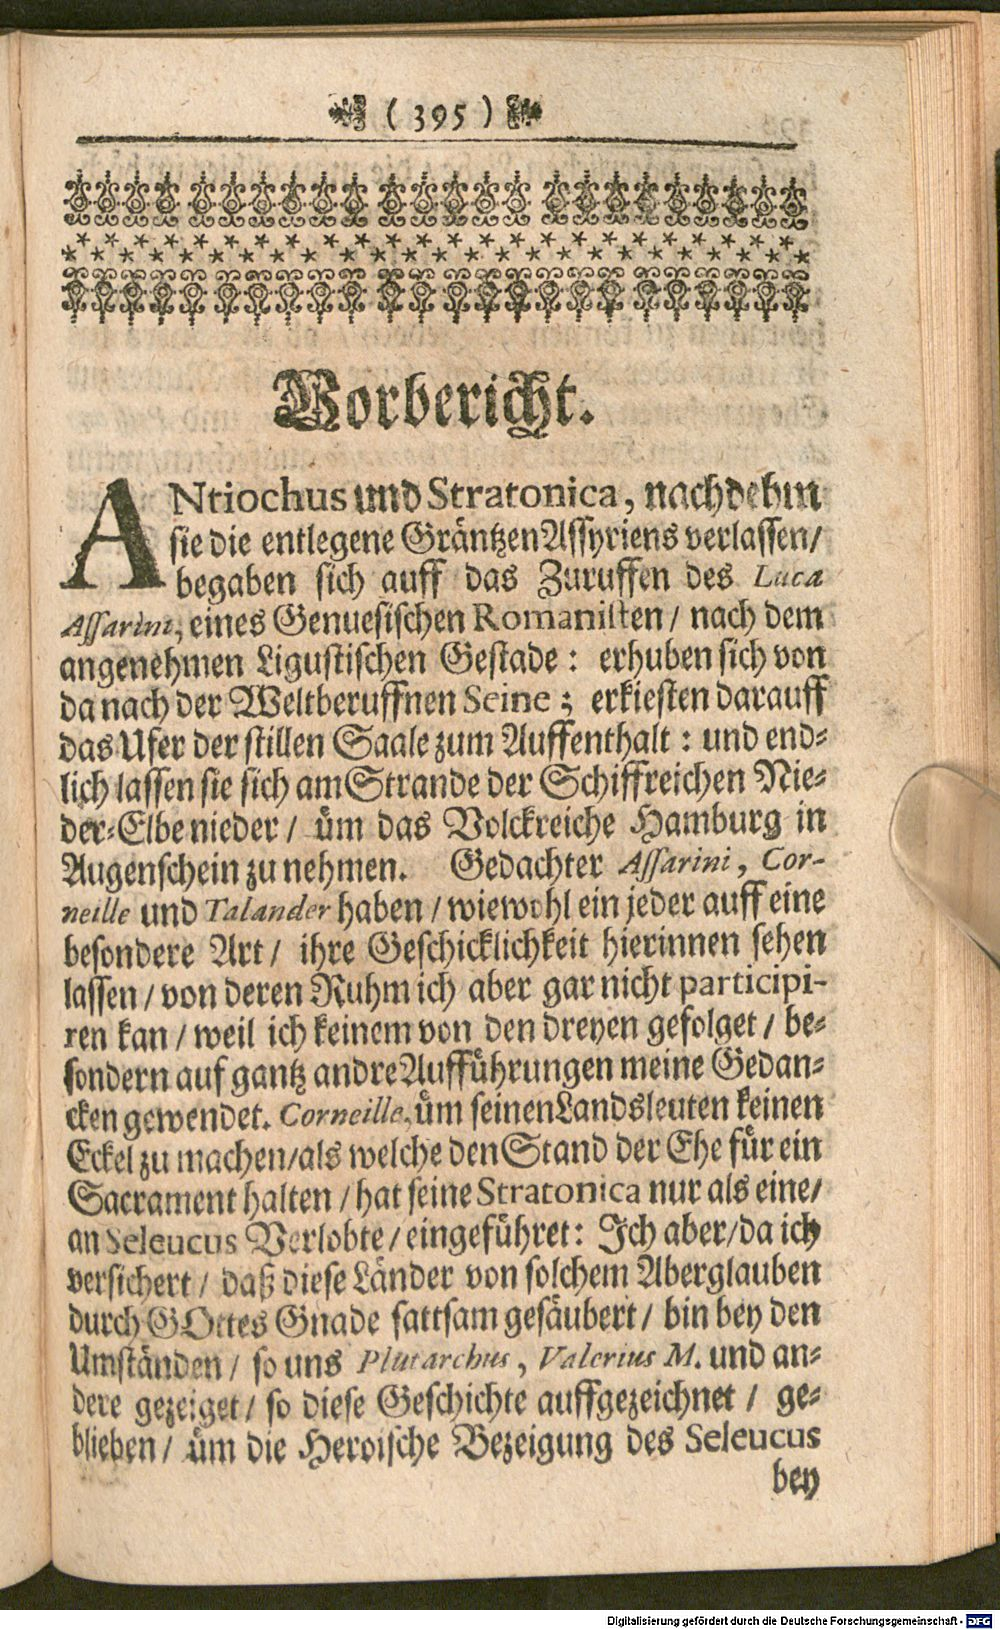 ( 395 )
Vorbericht.
ANtiochus und Stratonica, nachdehm
sie die entlegene Gräntzen Assyriens verlassen/
begaben sich auff das Zuruffen des Luca
Assarini, eines Genuesischen Romanisten / nach dem
angenehmen Ligustischen Gestade: erhuben sich von
da nach der Weltberuffnen Seine; erkiesten darauff
das Ufer der stillen Saale zum Auffenthalt: und end-
lich lassen sie sich am Strande der Schiffreichen Nie-
der-Elbe nieder / üm das Volckreiche Hamburg in
Augenschein zu nehmen. Gedachter Assarini, Cor-
neille und Talander haben / wiewohl ein jeder auff eine
besondere Art / ihre Geschicklichkeit hierinnen sehen
lassen / von deren Ruhm ich aber gar nicht participi-
ren kan / weil ich keinem von den dreyen gefolget / be-
sondern auf gantz andre Aufführungen meine Gedan-
cken gewendet. Corneille, üm seinen Landsleuten keinen
Eckel zu machen/als welche den Stand der Ehe für ein
Sacrament halten / hat seine Stratonica nur als eine/
an Seleucus Verlobte / eingeführet: Ich aber/da ich
versichert / daß diese Länder von solchem Aberglauben
durch GOttes Gnade sattsam gesäubert / bin bey den
Umständen / so uns Plutarchus, Valerius M. und an-
dere gezeiget / so diese Geschichte auffgezeichnet / ge-
blieben / üm die Heroische Bezeigung des Seleucus
bey
Digitalisierung gefördert durch die Deutsche Forschungsgemeinschaft - DFG